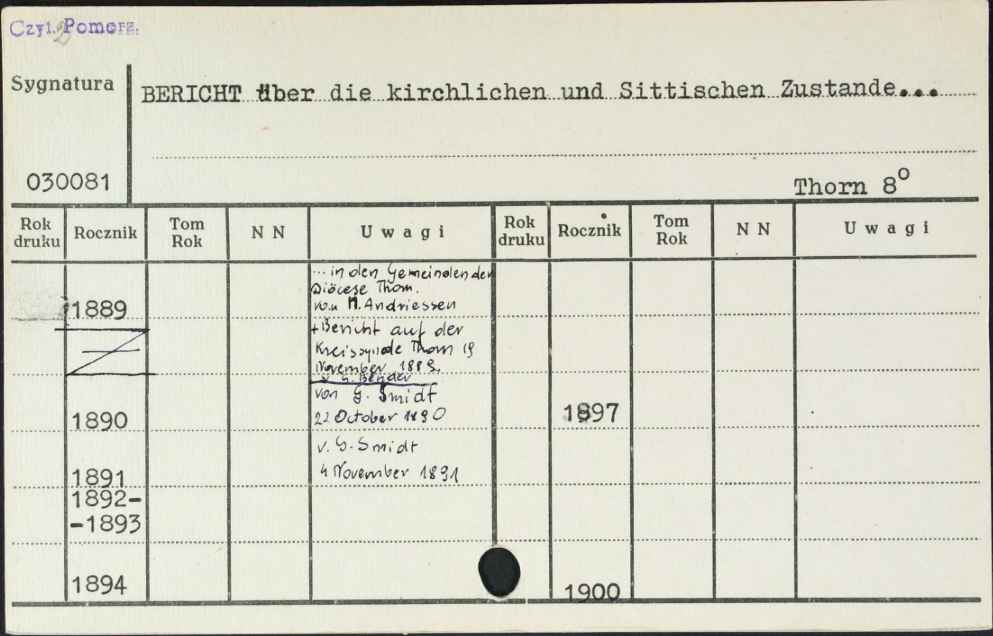 Czyt. Pomorz.
2
Sygnatura
BERICHT über die kirchlichen und Sittischen Zustande...
030081
Thorn 8°
Rok druku Rocznik Tom Rok N N U w a g i Rok druku Rocznik Tom Rok N N U w a g i
... in den Gemeinden der
Diöcese Thorn.
von M. Andriessen
1889
+Bericht auf der
Kreissynode Thorn 19
November 1889.
v. G. Bender
von G. Smidt
22 October 1890
1890
1897
v. G. Smidt
4 November 1891
1891
1892-
-1893
1894
1900